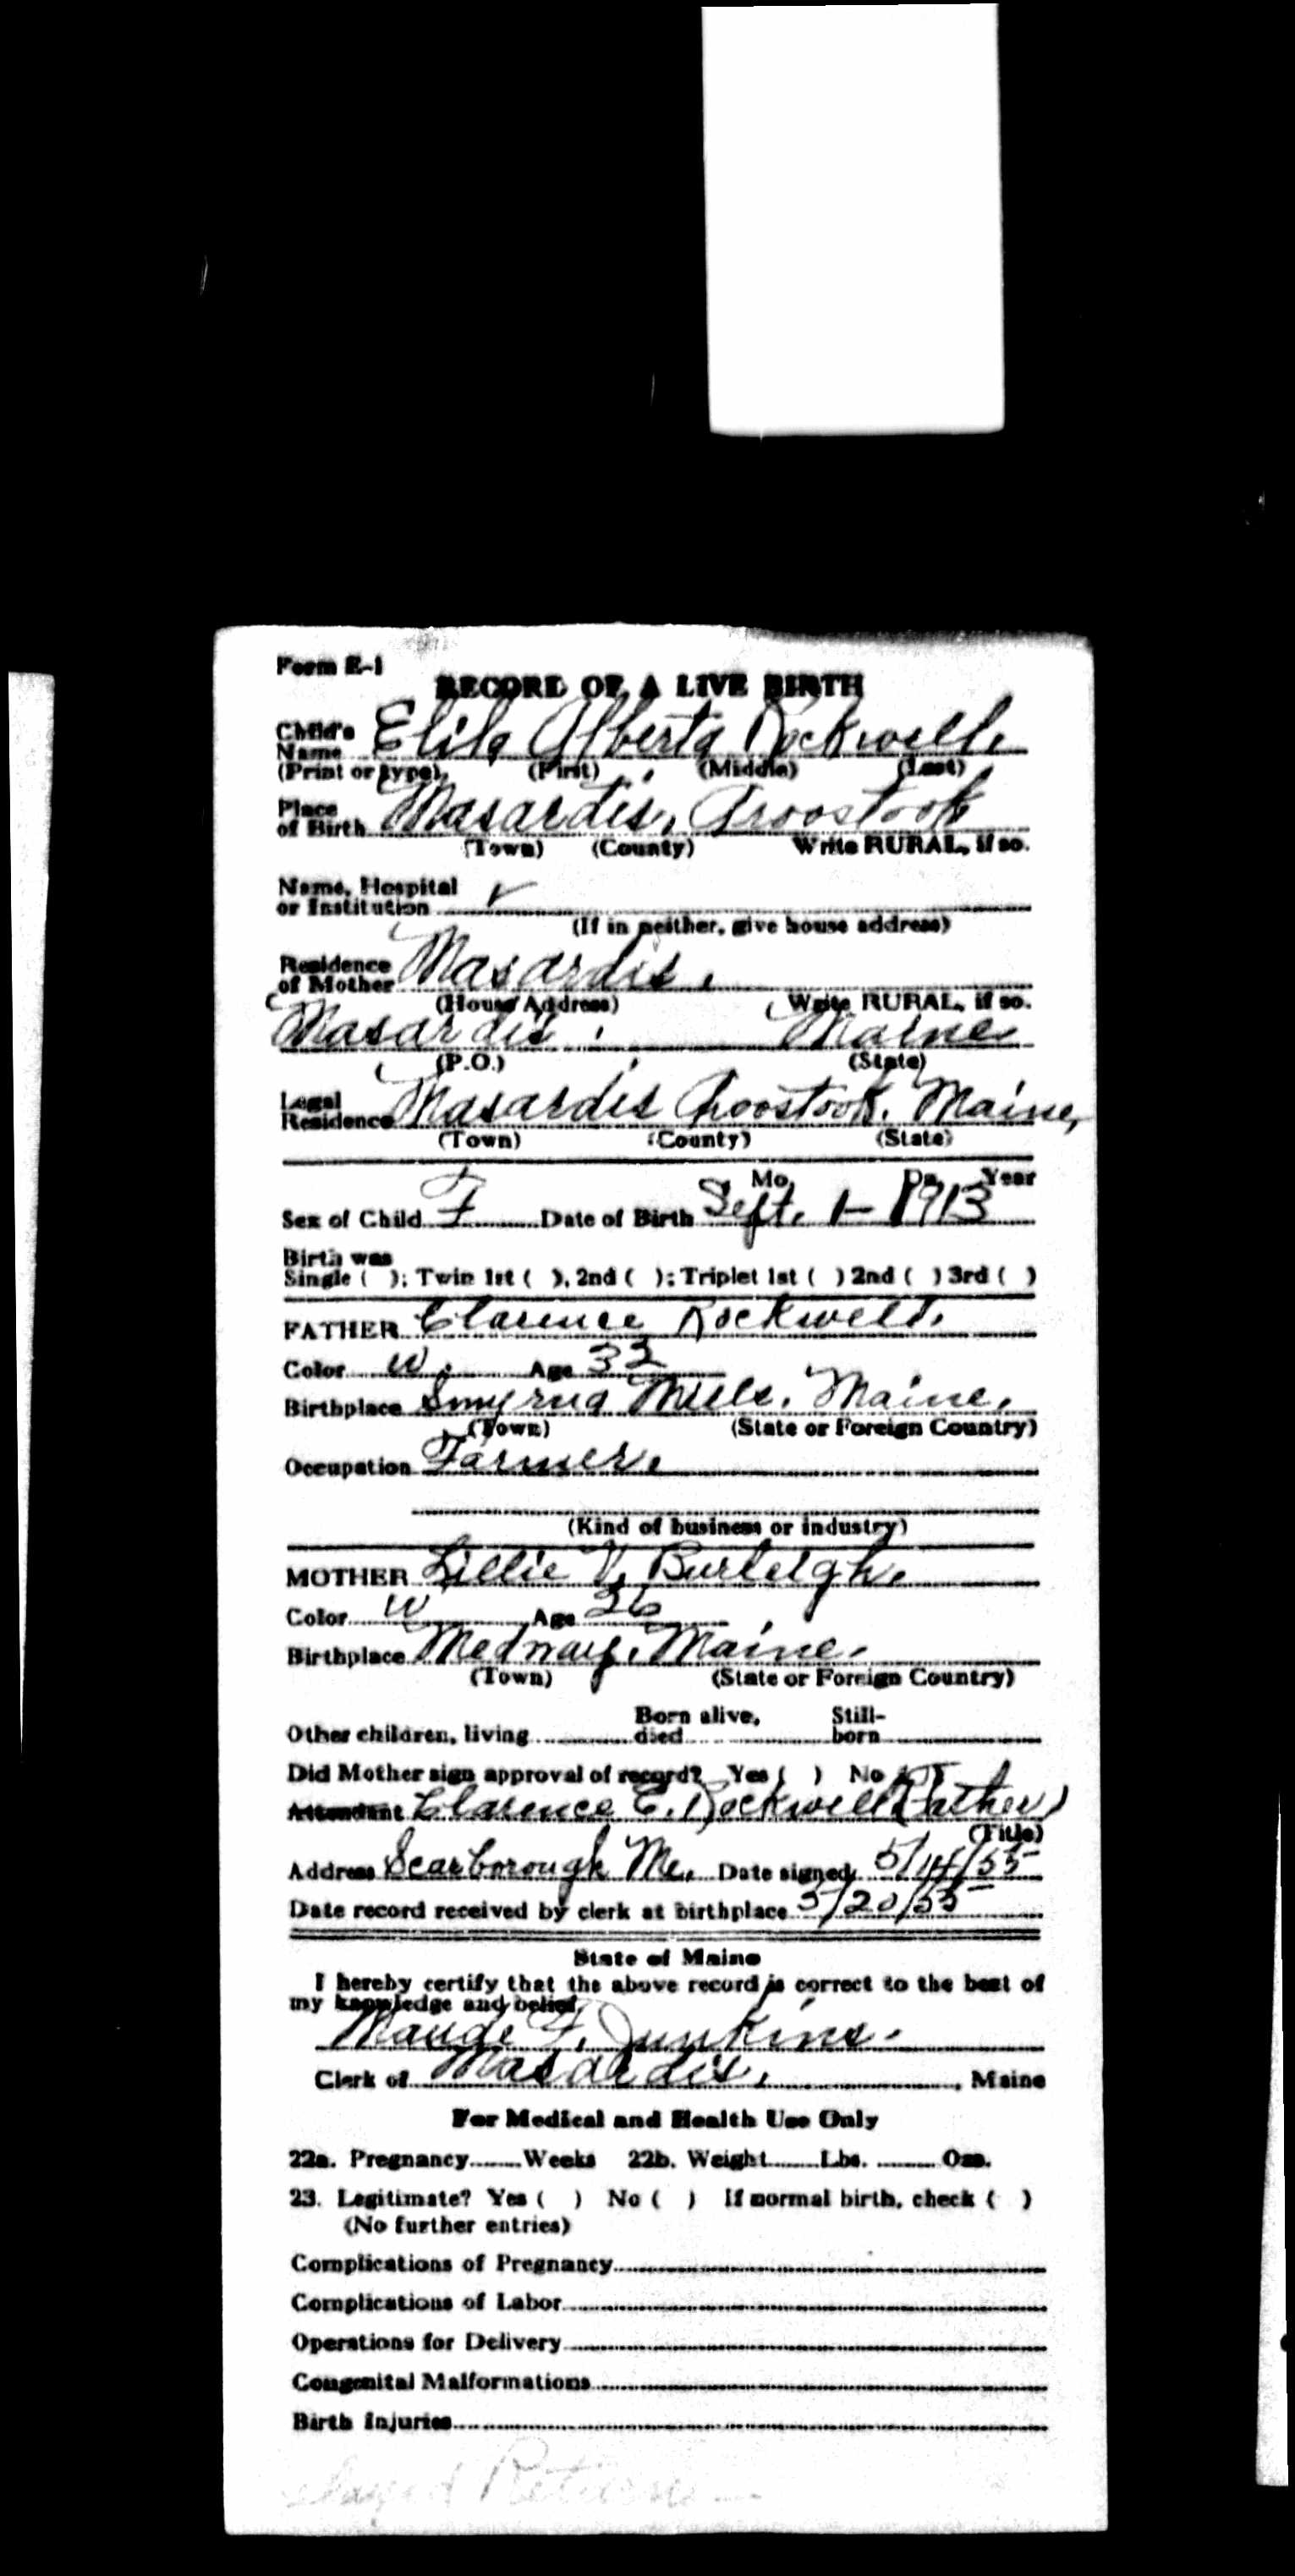 Form E-1
RECORD OF A LIVE BIRTH
Child's
Name Elila Alberta Rockwell.
(Print or type), (First) (Middle) (Last)
Place
of Birth Masardis, Aroostook
(Town) (County) Write RURAL, if so.
Name, Hospital
or Institution
(If in neither, give house address)
Residence
of Mother Masardis.
(House Address) Write RURAL, if so.
Masardis. Maine
(P.O.) (State)
Legal
Residence Masardis Aroostook. Maine,
(Town) (County) (State)
Mo. Da. Year
Sex of Child F Date of Birth Sept. 1- 1913
Birth was
Single ( ); Twin 1st ( ), 2nd ( ); Triplet 1st ( ) 2nd ( ) 3rd ( )
FATHER Clarence Rockwell.
Color W. Age 32
Birthplace Smyrna Mills. Maine.
(Town) (State or Foreign Country)
Occupation Farmer.
(Kind of business or industry)
MOTHER Lillie V. Burleigh.
Color W Age
Birthplace Medway. Maine.
(Town) (State or Foreign Country)
Born alive, Still-
Other children, living died born
Did Mother sign approval of record? Yes ( ) No ( )
Attendant Clarence E. Rockwell (Father)
(Title)
Address Scarborough Me. Date signed 5/14/55
Date record received by clerk at birthplace 5/20/55
State of Maine
I hereby certify that the above record is correct to the best of
my knowledge and belief,
Maude F. Junkins.
Clerk of Masardis. , Maine
For Medical and Health Use Only
22a. Pregnancy Weeks 22b. Weight Lbs. Ozs.
23. Legitimate? Yes ( ) No ( ) If normal birth, check ( )
(No further entries)
Complications of Pregnancy
Complications of Labor
Operations for Delivery
Congenital Malformations
Birth Injuries
Return